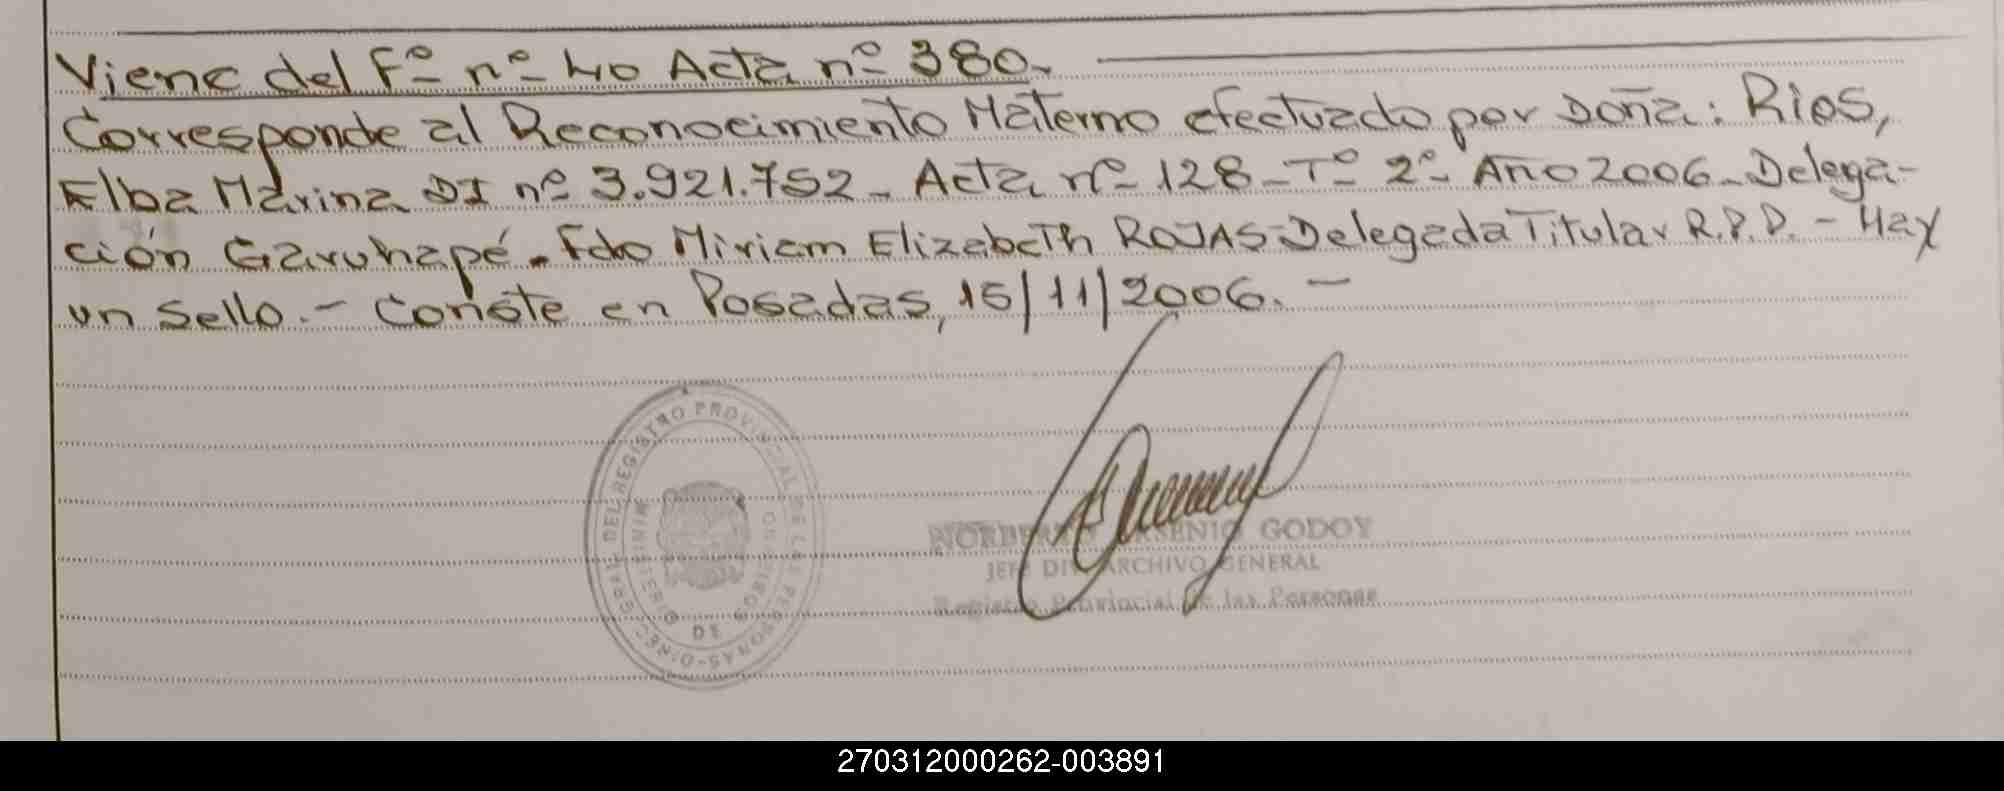 Viene del Fº nº 40 Acta nº 380.
Corresponde al Reconocimiento Materno efectuado por Doña: Rios,
Elba Marina DI nº 3.921.752 - Acta nº 128 - Tº 2º Año 2006 - Delega-
ción Garuhapé - Fdo Miriam Elizabeth ROJAS - Delegada Titular R.P.P. - Hay
un Sello. - Conste en Posadas, 15/11/2006. -
DIREC. GRAL. DEL REGISTRO PROVINCIAL DE LAS PERSONAS
MINISTERIO DE GOBIERNO
NORBERTO ARSENIO GODOY
JEFE DIV. ARCHIVO GENERAL
Registro Provincial de las Personas
270312000262-003891